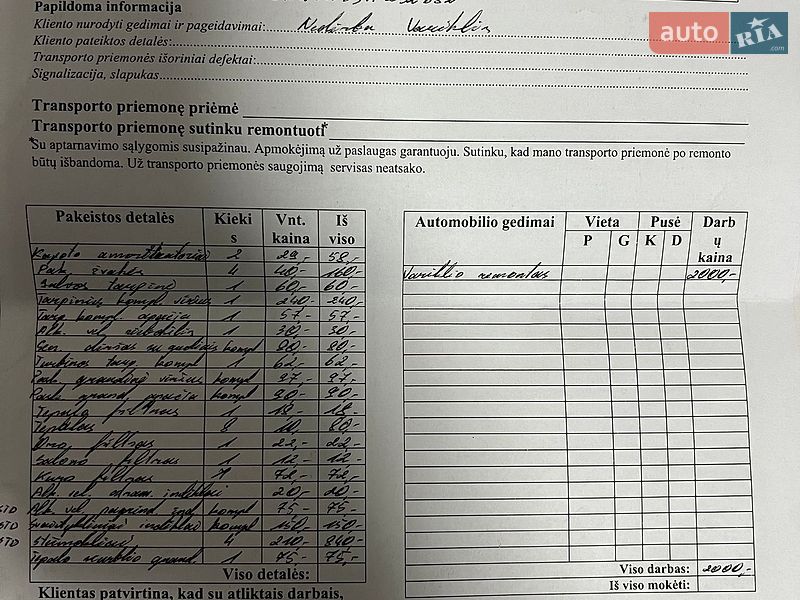 Papildoma informacija
Kliento nurodyti gedimai ir pageidavimai: Nedirba Variklis
Kliento pateiktos detalės:
Transporto priemonės išoriniai defektai:
Signalizacija, slapukas
auto RIA .com
Transporto priemonę priėmė
Transporto priemonę sutinku remontuoti*
*Su aptarnavimo sąlygomis susipažinau. Apmokėjimą už paslaugas garantuoju. Sutinku, kad mano transporto priemonė po remonto
būtų išbandoma. Už transporto priemonės saugojimą servisas neatsako.
Pakeistos detalės Kieki s Vnt. kaina Iš viso
Kapoto amortizatoriai 2 29,- 58,-
Pak. žvakės 4 40,- 160,-
Galvos tarpinė 1 60,- 60,-
Tarpinių kompl. viršus 1 240,- 240,-
Tarp kompl. apačia 1 57,- 57,-
1 30,- 30,-
kompl 80,- 80,-
Turbinos tarp. kompl 1 62,- 62,-
Pask. grandinė viršus kompl 97,- 97,-
Pask. grand. apačia kompl 90,- 90,-
Tepalo filtras 1 18,- 18,-
Tepalas 8 10,- 80,-
Oro filtras 1 22,- 22,-
Salono filtras 1 12,- 12,-
Kuro filtras 1 72,- 72,-
20,- 20,-
STO kompl 75,- 75,-
STO kompl 150,- 150,-
STO Stūmokliai 4 210,- 840,-
Tepalo siurblio grand. 1 75,- 75,-
Viso detalės:
Klientas patvirtina, kad su atliktais darbais,
Automobilio gedimai Vieta Pusė Darb ų kaina
P G K D
Variklio remontas 2000,-
Viso darbas: 2000,-
Iš viso mokėti: